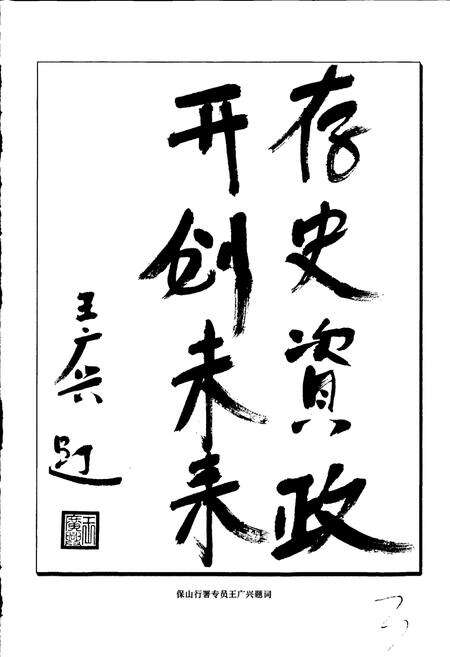 存史資政
开创未来
王广兴题
保山行署专员王广兴题词